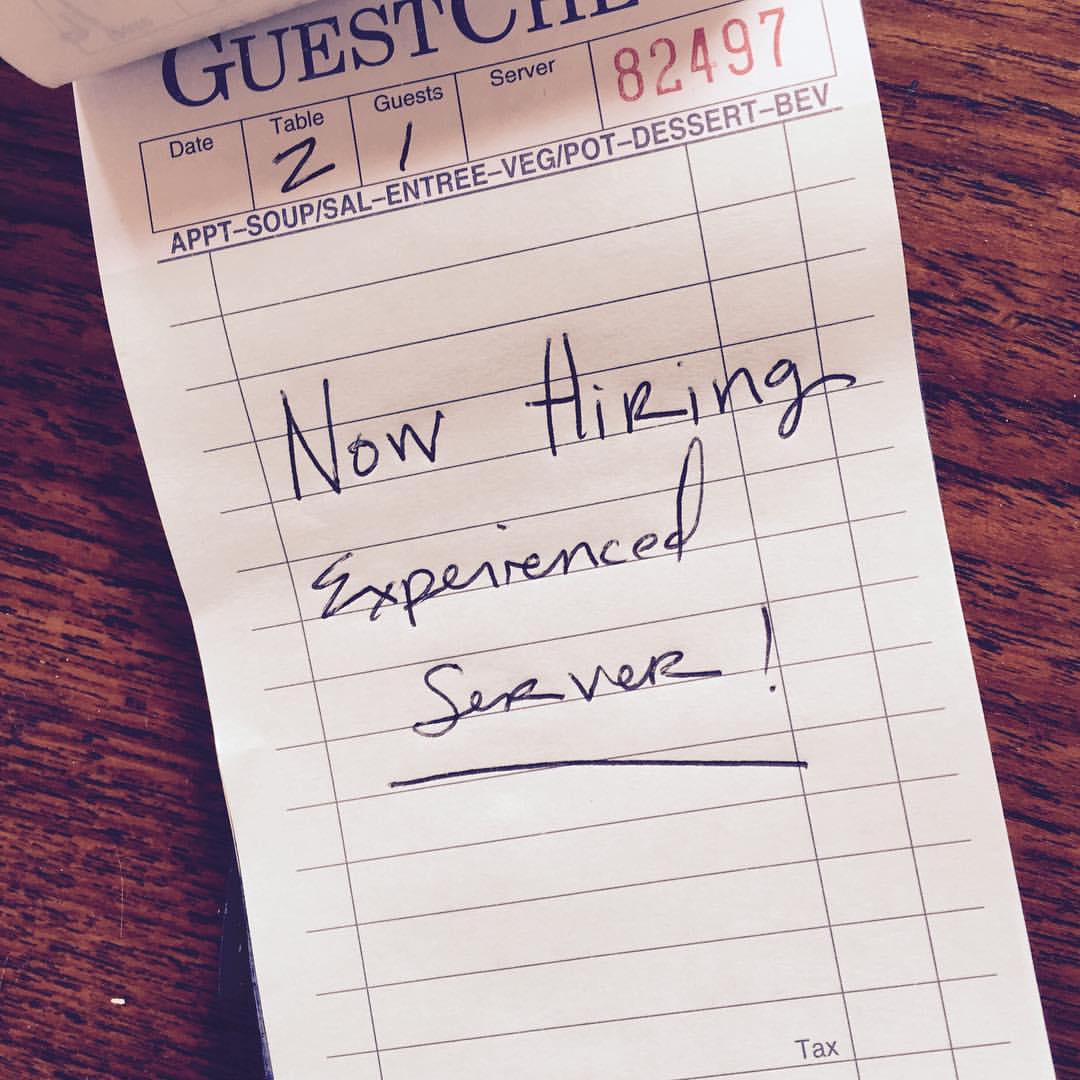 GUESTCHE
Date Table Guests Server 82497
2 1
APPT–SOUP/SAL–ENTREE–VEG/POT–DESSERT–BEV
Now Hiring
Experienced
Server!
Tax